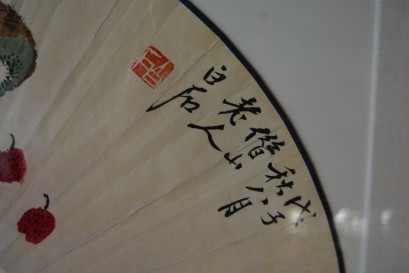 戊子
秋八月
借山
老人
白石